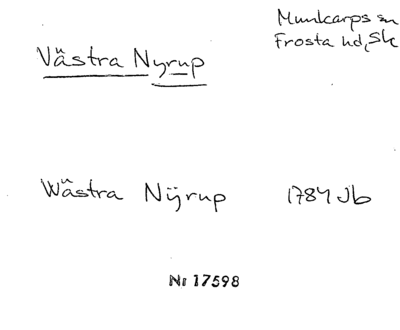 Munkarps sn
Frosta hd, Sk
Västra Nyrup
Wästra Nÿrup 1784 Jb
Nr 17598